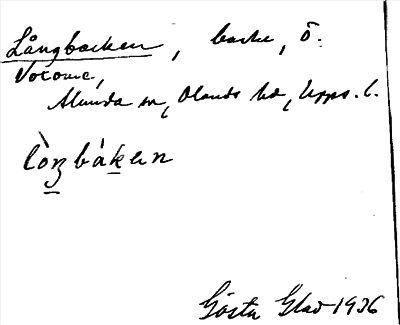 Långbacken, backe, Ö.
Vocoune,
Alunda sn, Olands hd, Upps. l.
lòŋbákεn
Gösta Glad 1936